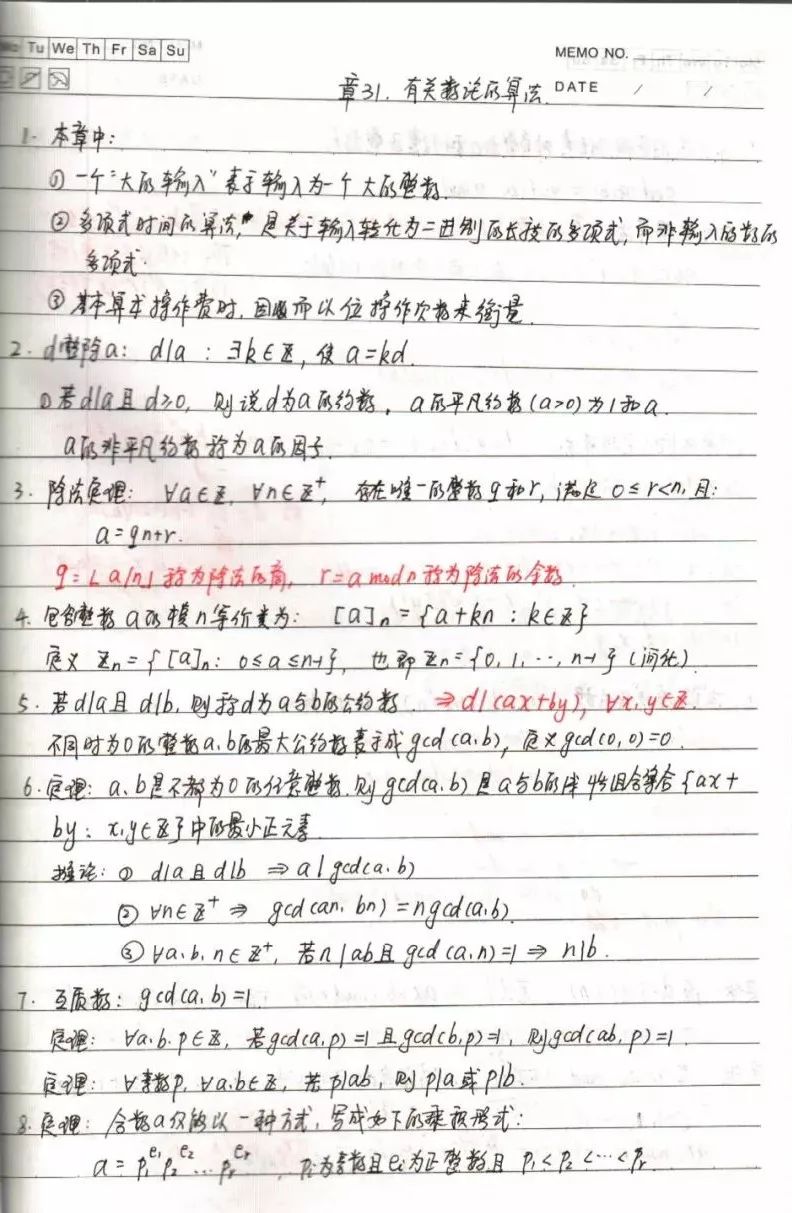 Mo Tu We Th Fr Sa Su
MEMO NO.
DATE / /
章31. 有关数论的算法.
1. 本章中:
① 一个"大的输入"表示输入为一个大的整数.
② 多项式时间的算法, 是关于输入转化为二进制的长技的多项式, 而非输入的数的
多项式.
③ 基本算术操作费时, 因而以位操作次数来衡量.
2. d整除a: d|a : ∃k∈Z, 使 a=kd.
① 若d|a且d≥0, 则说d为a的约数, a的平凡约数(a>0)为1和a.
a的非平凡约数称为a的因子.
3. 除法定理: ∀a∈Z, ∀n∈Z⁺, 存在唯一的整数q和r, 满足 0≤r<n, 且:
a=qn+r.
q=⌊a/n⌋称为除法的商, r=a mod n 称为除法的余数.
4. 包含整数a的模n等价类为: [a]ₙ={a+kn : k∈Z}
定义 Zₙ={[a]ₙ: 0≤a≤n-1}, 也即 Zₙ={0, 1, ..., n-1} (简化).
5. 若d|a且d|b, 则称d为a与b的公约数. ⇒ d|(ax+by), ∀x,y∈Z.
不同时为0的整数a,b的最大公约数表示成gcd(a,b), 定义gcd(0,0)=0.
6. 定理: a、b是不都为0的任意整数. 则gcd(a,b)是a与b的线性组合集合{ax+
by: x,y∈Z}中的最小正元素.
推论: ① d|a且d|b ⇒ a|gcd(a,b)
② ∀n∈Z⁺ ⇒ gcd(an, bn)=ngcd(a,b).
③ ∀a,b,n∈Z⁺, 若n|ab且gcd(a,n)=1 ⇒ n|b.
7. 互质数: gcd(a,b)=1.
定理: ∀a,b,p∈Z, 若gcd(a,p)=1且gcd(b,p)=1, 则gcd(ab,p)=1.
定理: ∀素数p, ∀a,b∈Z, 若p|ab, 则p|a或p|b.
8. 定理: 合数a仅能以一种方式, 写成如下的乘积形式:
a=p₁^e₁ p₂^e₂ ... pᵣ^eᵣ, pᵢ为素数且eᵢ为正整数且 p₁<p₂<...<pᵣ.